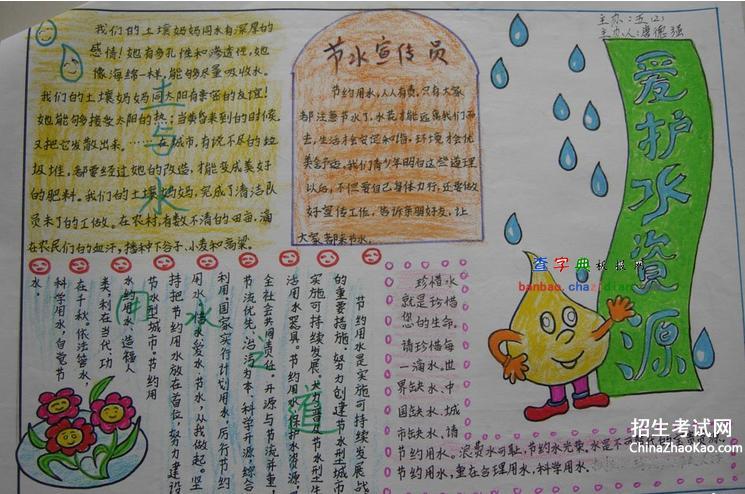 主办:五(2)
主办人:唐德强
爱护水资源
我们的土壤妈妈同水有深厚的
感情!她有多孔性和渗透性,她
像海绵一样,能够尽量吸收水。
我们的土壤妈妈同太阳有亲密的友谊!
她能够接受太阳的热;当黄昏来到的时候,
又把它发散出来。……在城市,有说不尽的垃
圾堆,都要经过她的改造,才能变成美好
的肥料。我们的土壤妈妈,完成了清洁队
员未了的工做。在农村,有数不清的田亩,滴
在农民们白的血汗,播种下谷子、小麦和高粱。
土与水
节水宣传员
节约用水,人人有责,只有大家
都注意节水了,水荒才能远离我们而
去,生活才会安定和谐,环境才会优
美舒适。我们青少年明白这些道理
以后,不但要自己身体力行,还要做
好宣传工作,告诉亲朋好友,让
大家都来节水。
节约用水是实施可持续发展战
的重要措施,努力创建节水型城市
实施可持续发展,大力普及节水型生
活用水器具。节约用水保护水资源,
全社会共同责任。开源与节流并重,
节流优先,治污为本,科学开源,综合
利用。国家实行计划用水,厉行节约
用水。惜水爱水节水,从我做起。坚
持把节约用水放在首位,努力建设
节水型城市节约用
水,节约用水,造福人
类,利在当代,功
在千秋。依法管水,
科学用水,自觉节
水。
用水之道
珍惜水
就是珍惜
您的生命。
请珍惜每
一滴水。世
界缺水、中
国缺水、城
市缺水,请
节约用水。浪费水可耻,节约水光荣。水是不可替代的宝贵资源。
节约用水,重在合理用水,科学用水。
查字典板报网
banbao.chazidian
招生考试网
ChinaZhaoKao.com